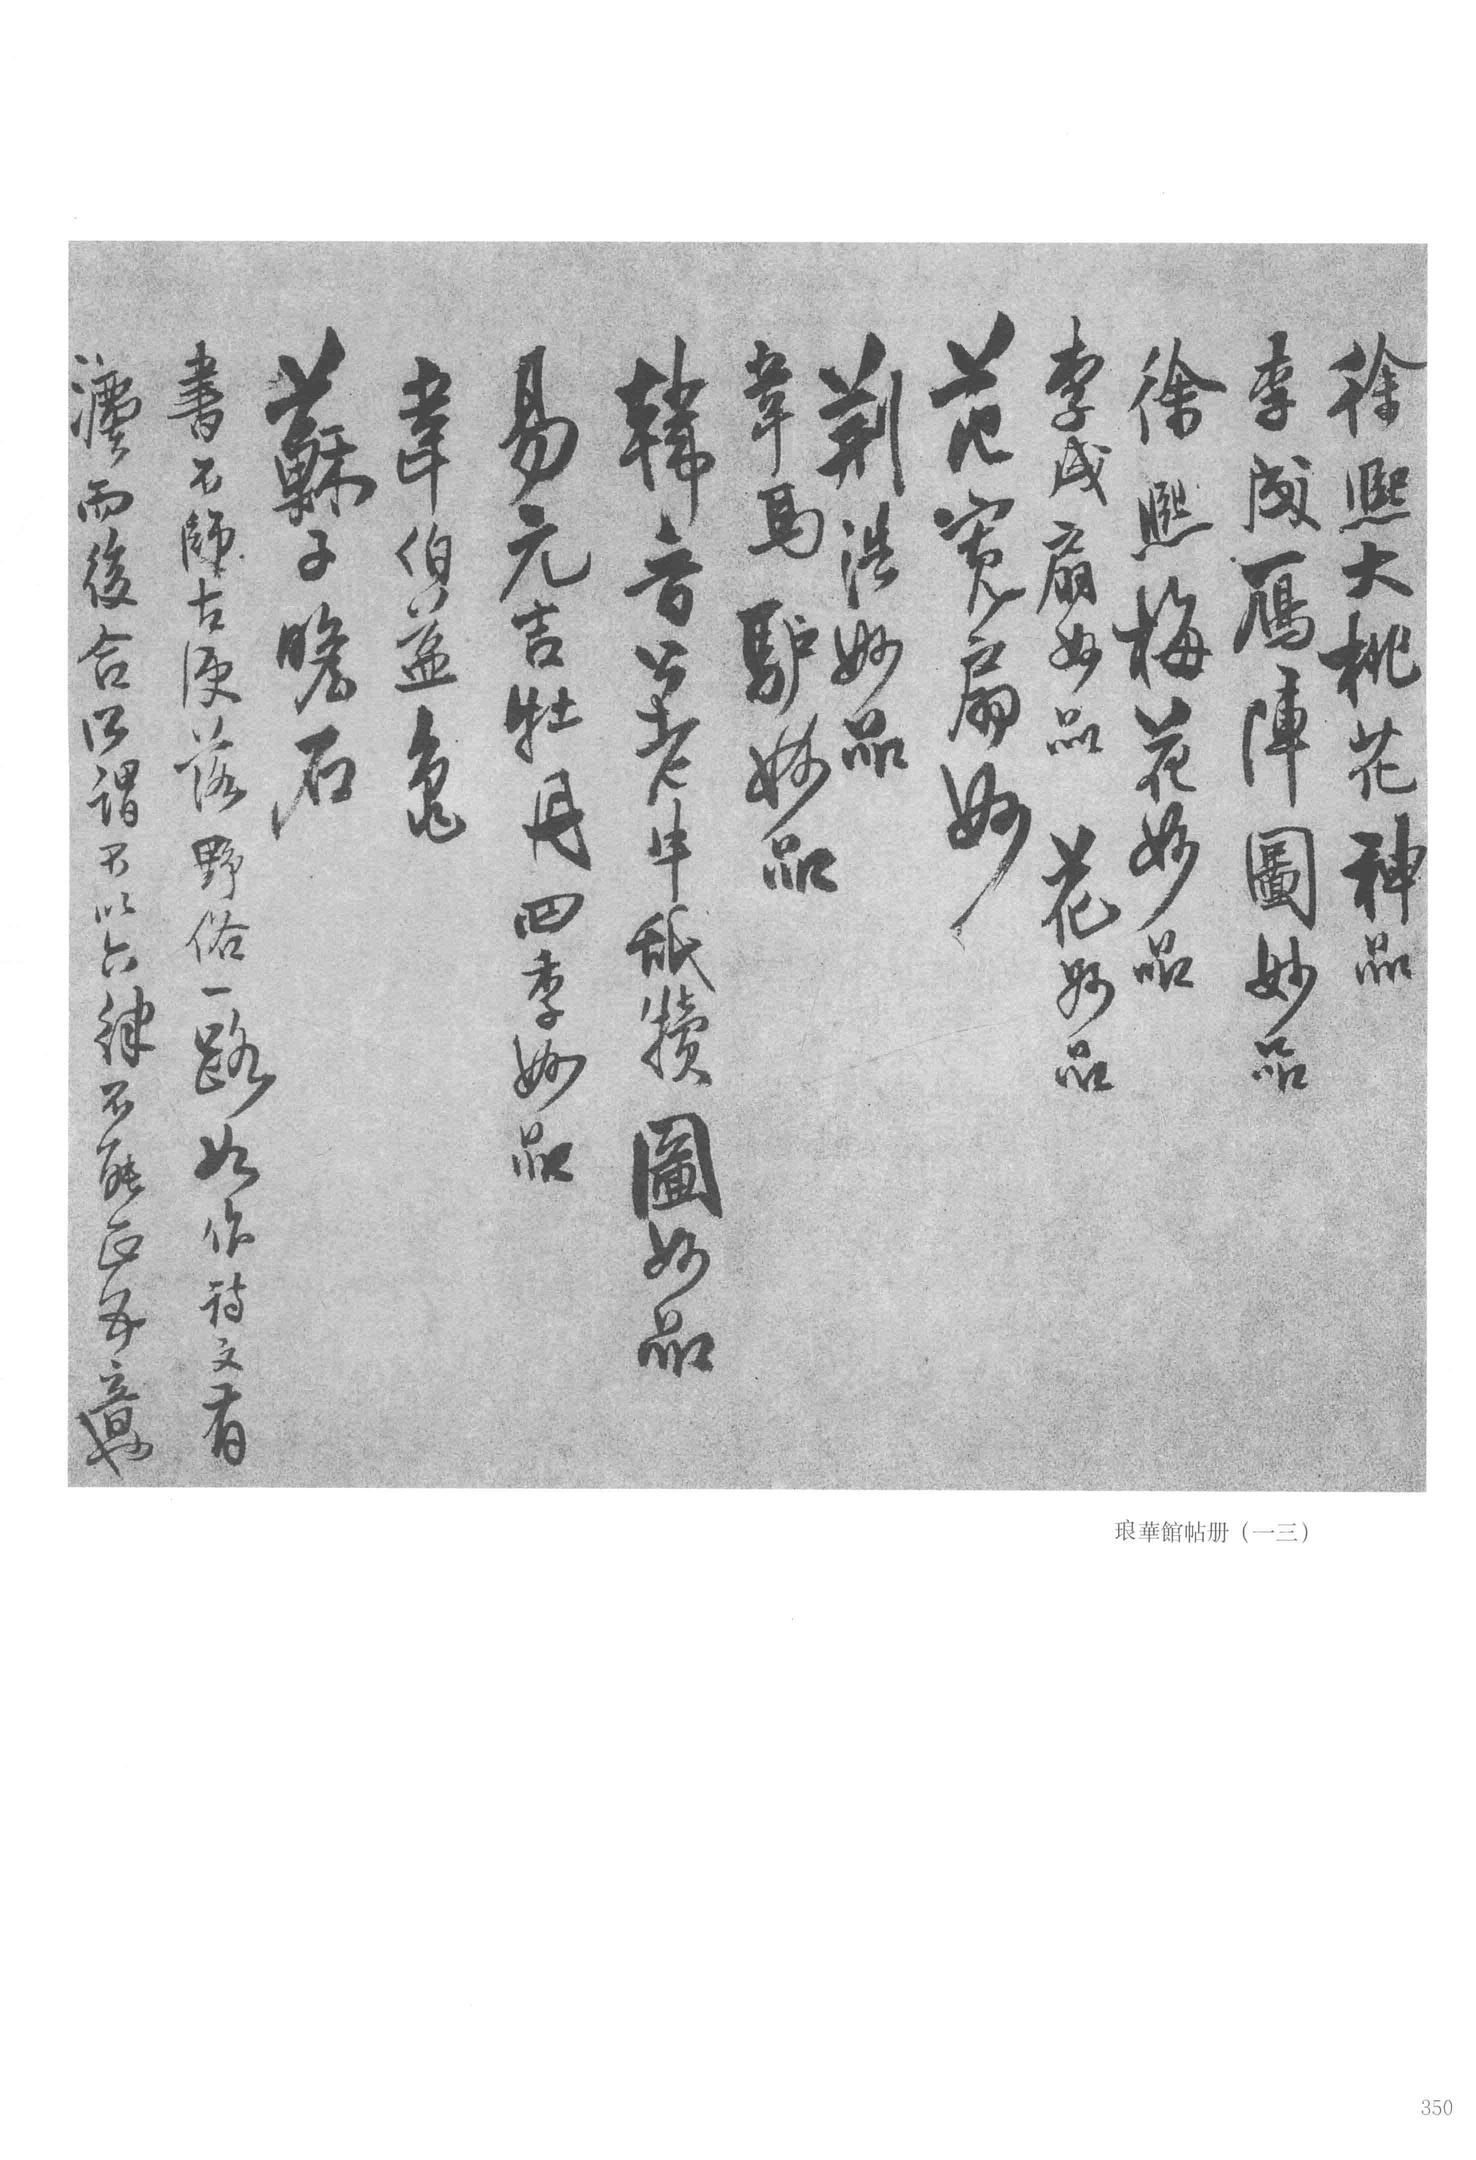 徐熙大桃花神品
李成鴈陣圖妙品
徐熙梅花妙品
李成扇妙品 花妙品
范寬扇妙
荆浩妙品
韋馬驢妙品
韓晉公老牛舐犢圖妙品
易元吉牡丹四季妙品
韋伯益龜
蘇子瞻石
書不師古便落野俗一路如作詩文有
灋而後合所謂不以六律不能正五音也
琅華館帖册（一三）
350